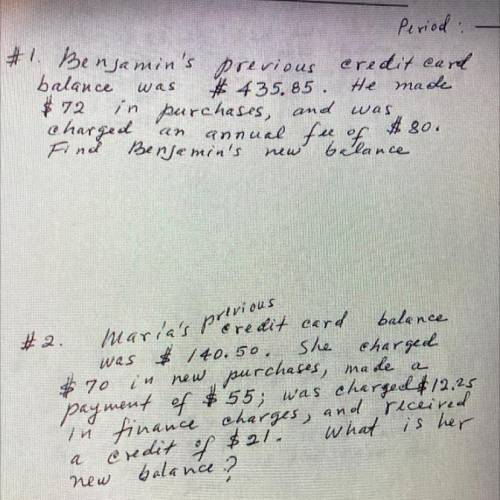 Period:
#1. Benjamin's previous credit card
balance was $435.85. He made
$72 in purchases, and was
charged an annual fee of $80.
Find Benjamin's new balance
#2. Maria's previous credit card balance
was $140.50. She charged
$70 in new purchases, made a
payment of $55; was charged $12.25
in finance charges, and received
a credit of $21. What is her
new balance?